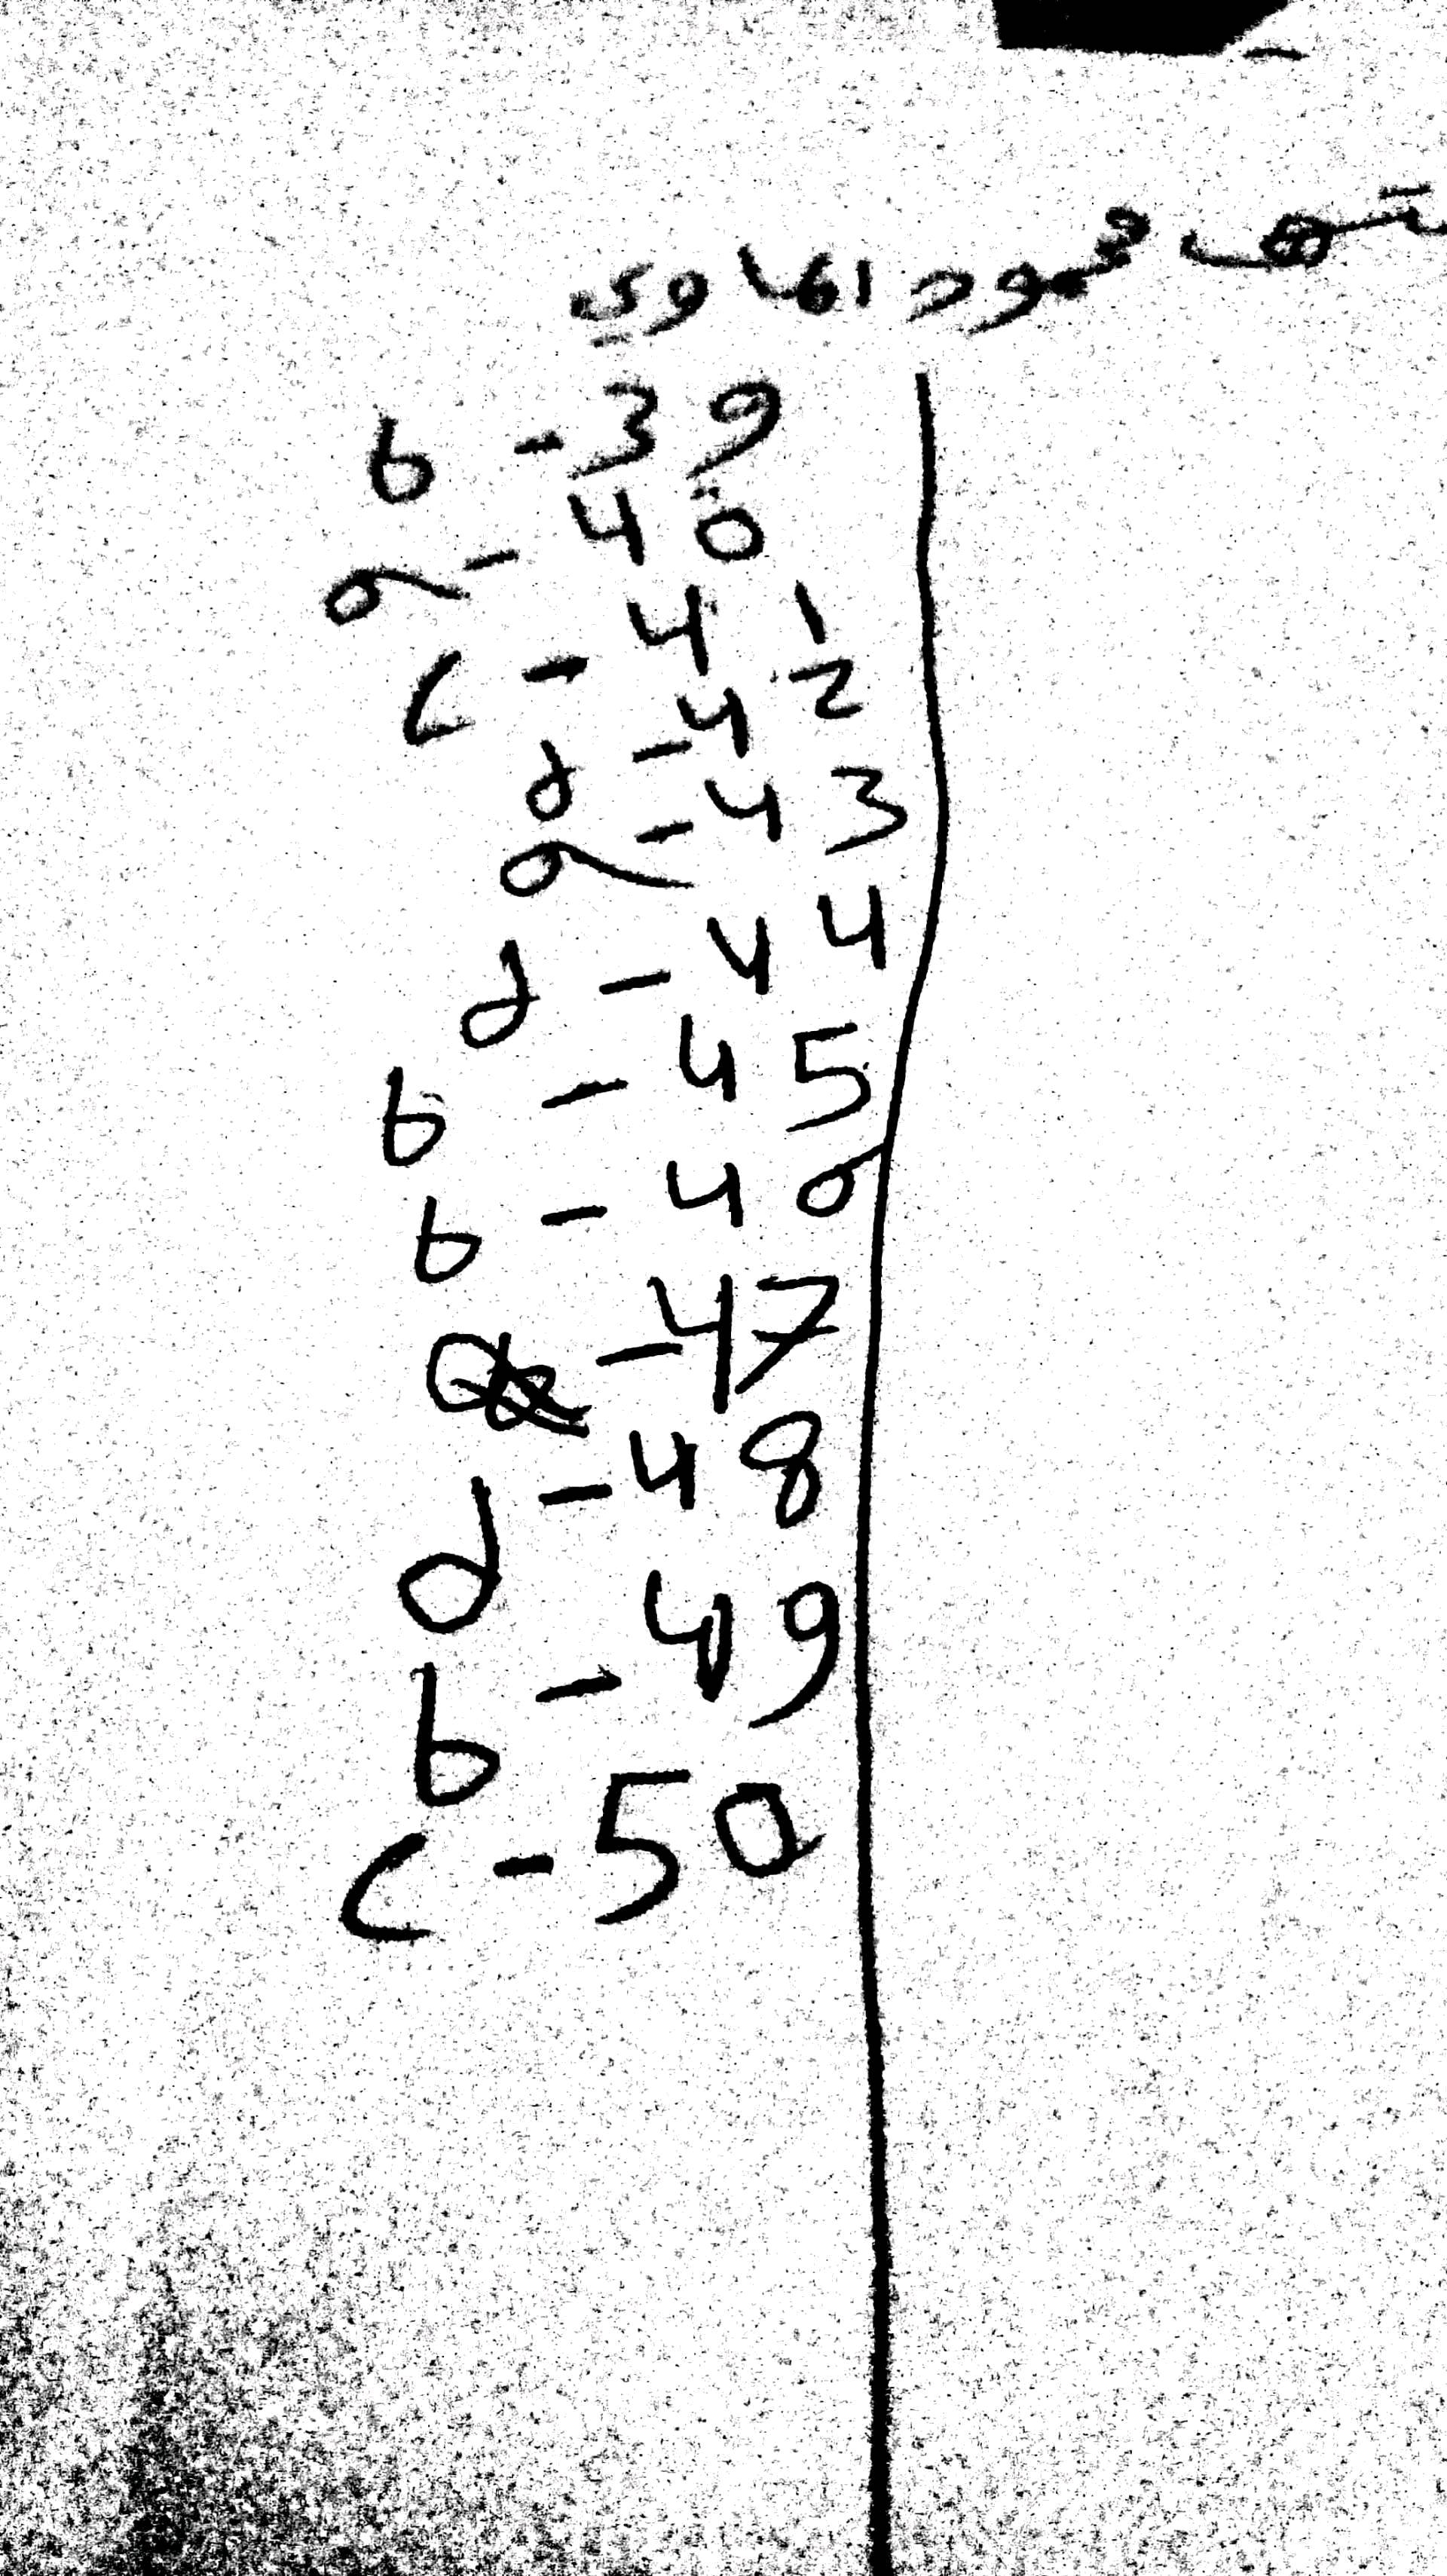 b - 39
a - 40
c - 41
d - 42
a - 43
d - 44
b - 45
b - 46
- 47
d - 48
b - 49
c - 50